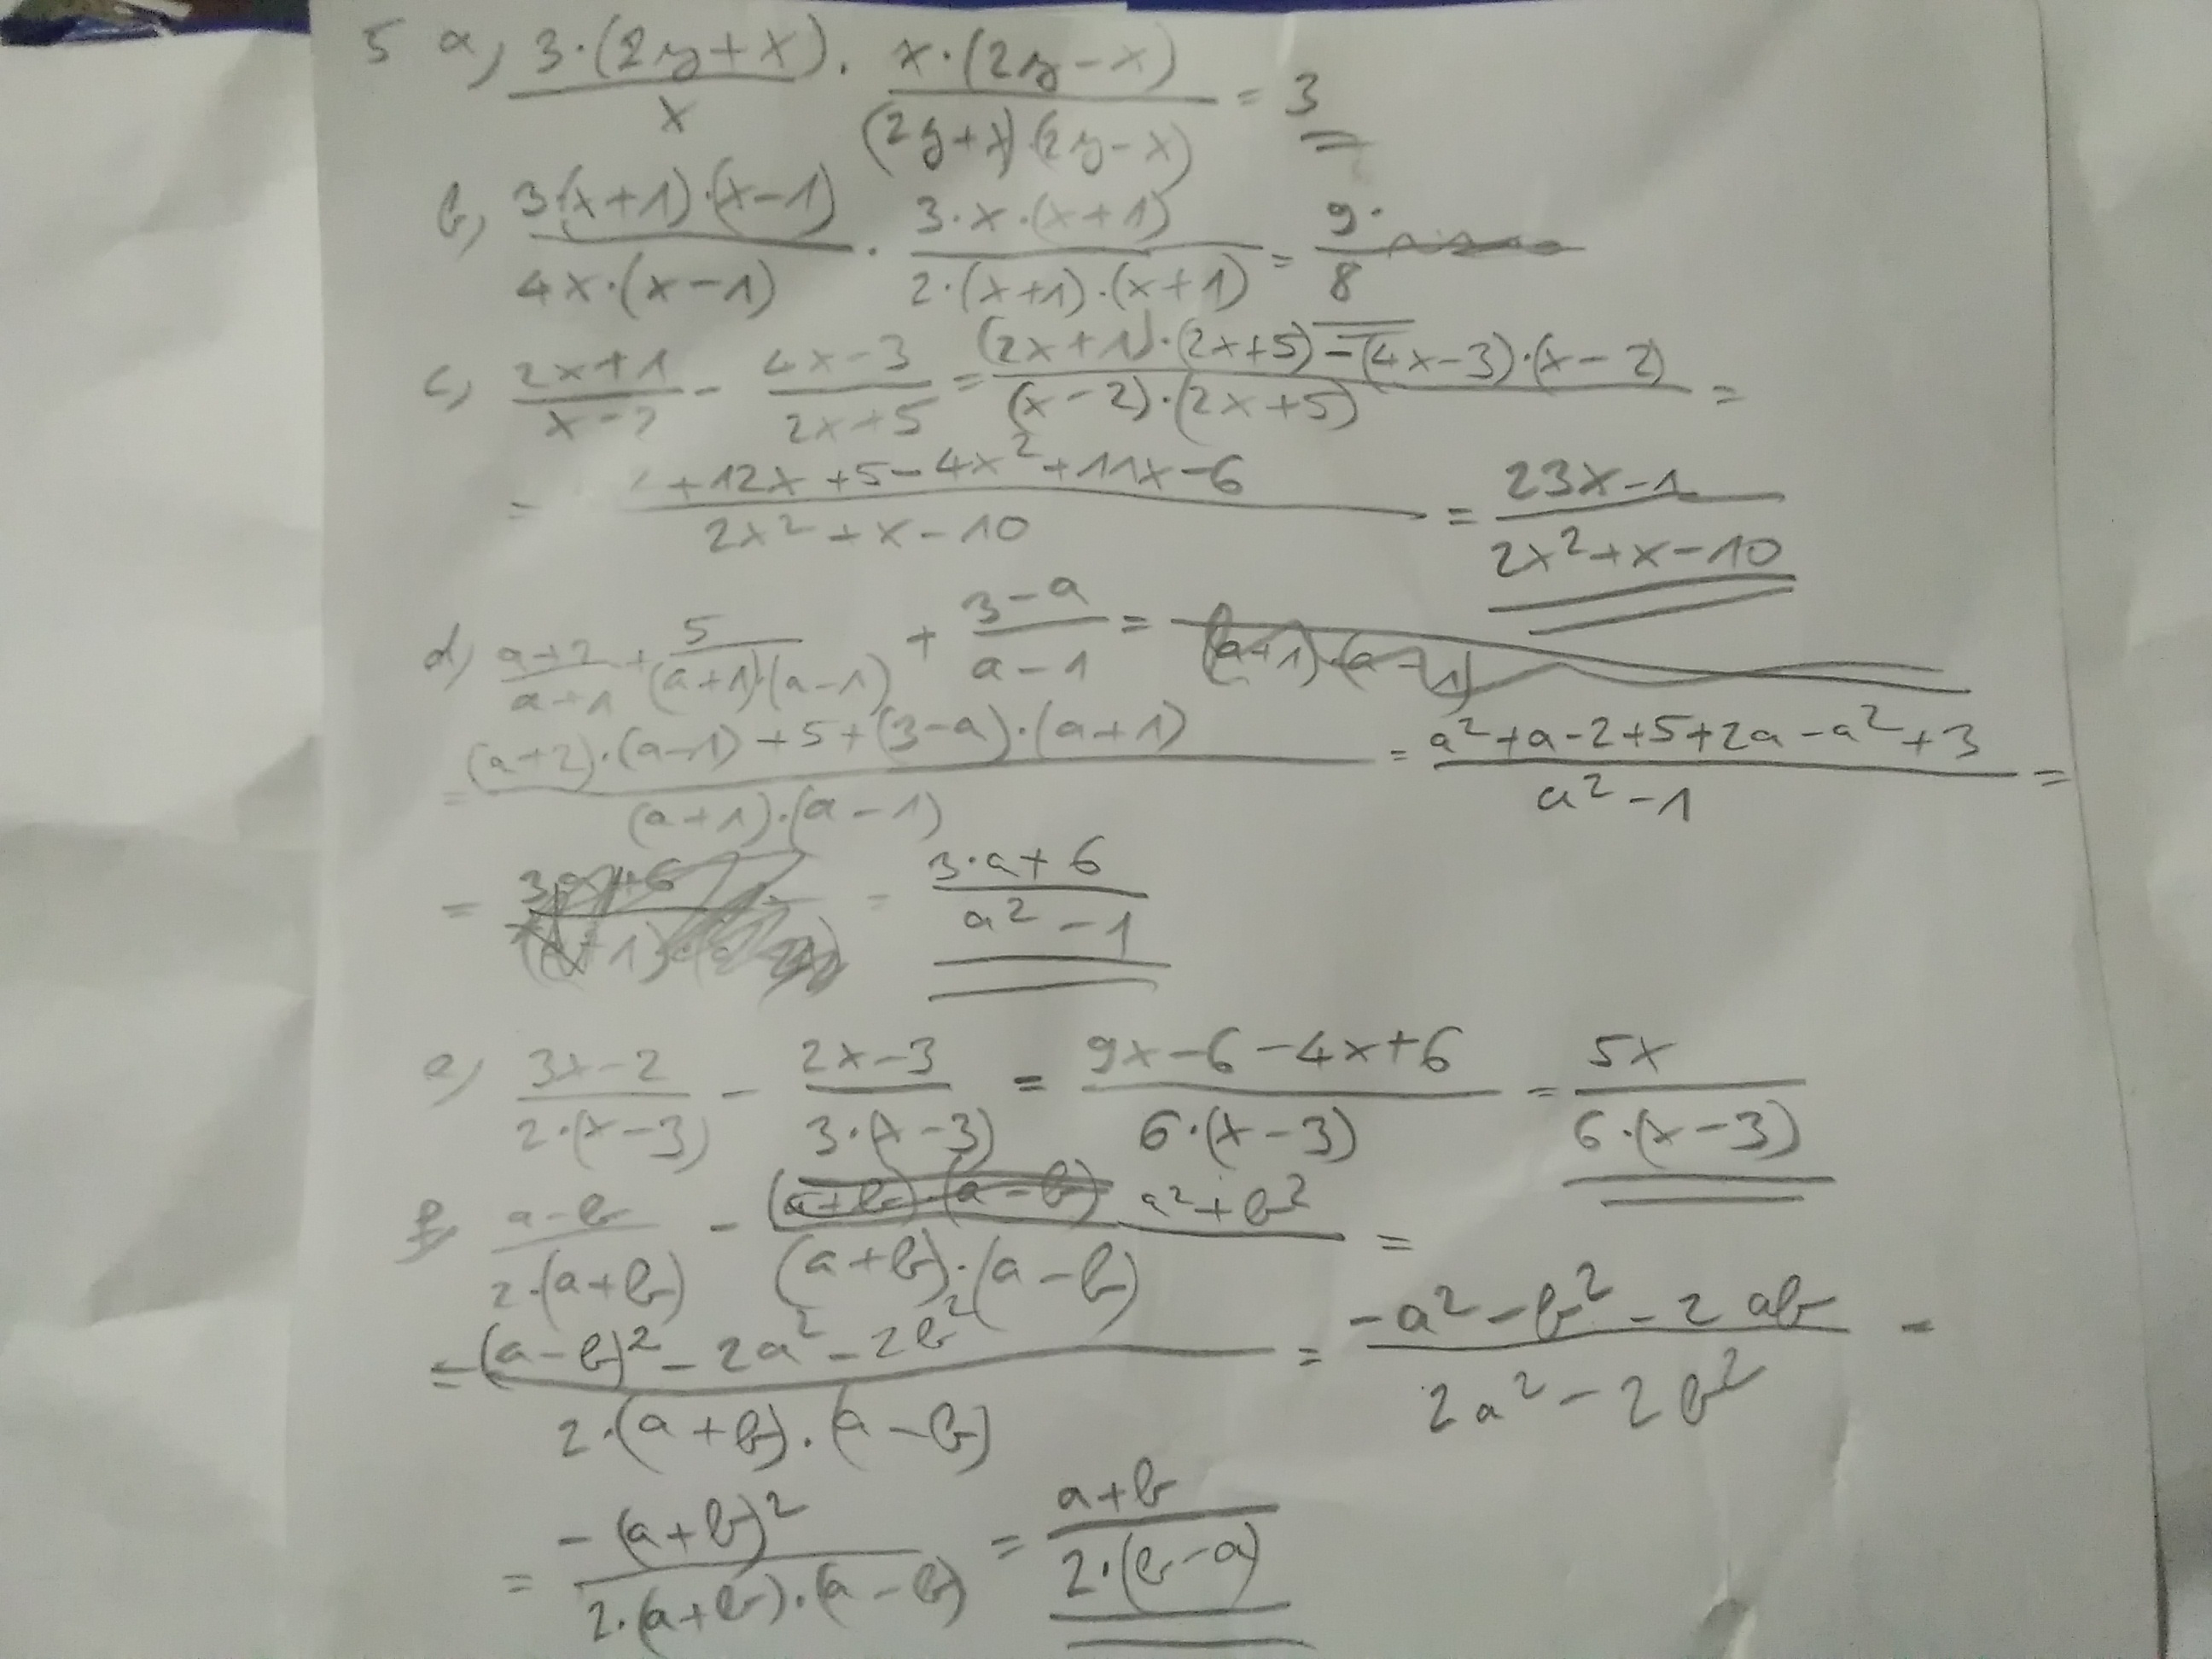 5 a, 3·(2y+x)/x · x·(2y-x)/(2y+x)·(2y-x) = 3
b, 3·(x+1)·(x-1)/4x·(x-1) · 3·x·(x+1)/2·(x+1)·(x+1) = 9·/8
c, 2x+1/x-2 - 4x-3/2x+5 = (2x+1)·(2x+5)-(4x-3)·(x-2)/(x-2)·(2x+5) =
= +12x+5-4x²+11x-6/2x²+x-10 = 23x-1/2x²+x-10
d, a+2/a+1 + 5/(a+1)·(a-1) + 3-a/a-1 = (a+1)·(a-1)
= (a+2)·(a-1)+5+(3-a)·(a+1)/(a+1)·(a-1) = a²+a-2+5+2a-a²+3/a²-1 =
= = 3·a+6/a²-1
e, 3x-2/2·(x-3) - 2x-3/3·(x-3) = 9x-6-4x+6/6·(x-3) = 5x/6·(x-3)
f, a-b/2·(a+b) - (a+b)·(a-b) a²+b²/(a+b)·(a-b) =
= (a-b)²-2a²-2b²/2·(a+b)·(a-b) = -a²-b²-2ab/2a²-2b² =
= -(a+b)²/2·(a+b)·(a-b) = a+b/2·(b-a)